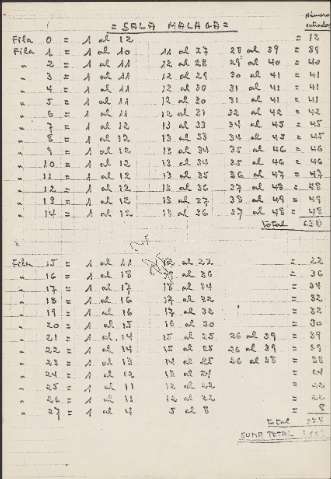 Número
entradas
= SALA MALAGA =
Fila 0 = 1 al 12 = 12
Fila 1 = 1 al 10 11 al 27 28 al 39 = 39
" 2 = 1 al 11 12 al 28 29 al 40 = 40
" 3 = 1 al 11 12 al 29 30 al 41 = 41
" 4 = 1 al 11 12 al 30 31 al 41 = 41
" 5 = 1 al 11 12 al 30 31 al 41 = 41
" 6 = 1 al 11 12 al 31 32 al 42 = 42
" 7 = 1 al 12 13 al 33 34 al 45 = 45
" 8 = 1 al 12 13 al 33 34 al 45 = 45
" 9 = 1 al 12 13 al 34 35 al 46 = 46
" 10 = 1 al 12 13 al 34 35 al 46 = 46
" 11 = 1 al 12 13 al 35 36 al 47 = 47
" 12 = 1 al 12 13 al 36 37 al 48 = 48
" 13 = 1 al 12 13 al 37 38 al 49 = 49
" 14 = 1 al 12 13 al 36 37 al 48 = 48
Total
Fila 15 = 1 al 11 12 al 22 = 22
" 16 = 1 al 18 19 al 36 = 36
" 17 = 1 al 17 18 al 34 = 34
" 18 = 1 al 16 17 al 32 = 32
" 19 = 1 al 16 17 al 32 = 32
" 20 = 1 al 15 16 al 30 = 30
" 21 = 1 al 14 15 al 25 26 al 39 = 39
" 22 = 1 al 14 15 al 25 26 al 39 = 39
" 23 = 1 al 13 14 al 25 26 al 38 = 38
" 24 = 1 al 12 13 al 24 = 24
" 25 = 1 al 11 12 al 22 = 22
" 26 = 1 al 11 12 al 22 = 22
" 27 = 1 al 4 5 al 8 = 8
Total
SUMA TOTAL